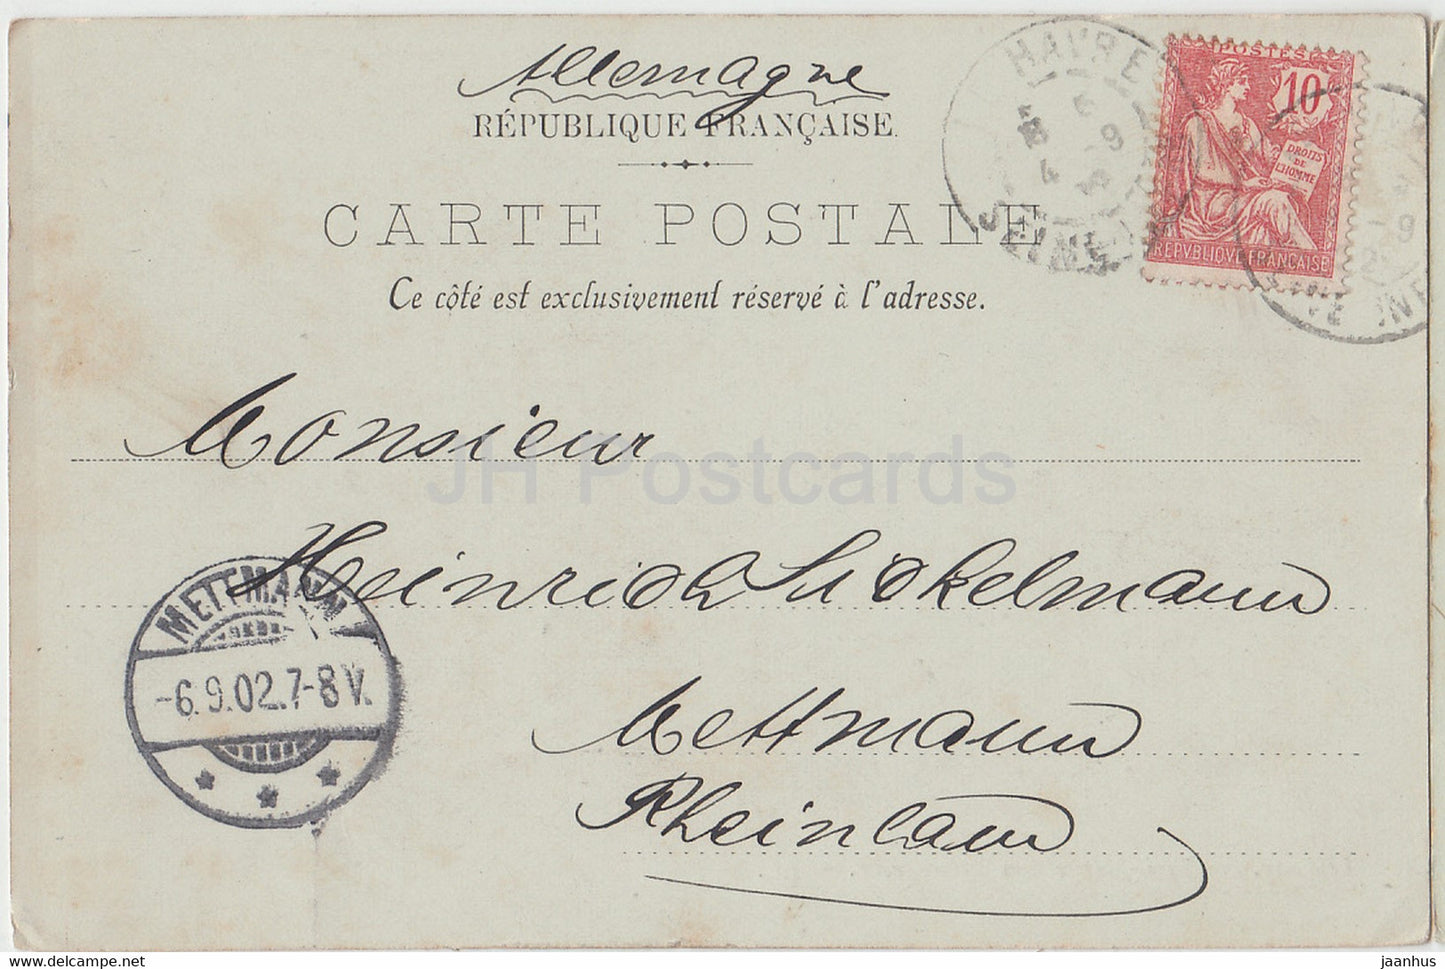 Allemagne
RÉPUBLIQUE FRANÇAISE.
CARTE POSTALE
Ce côté est exclusivement réservé à l'adresse.
HAVRE
SEINE
POSTES
10
DROITS
DE
L'HOMME
REPVBLIQVE FRANÇAISE
Monsieur
JH Postcards
Heinrich Lückelmann
METTMANN
-6.9.02.7-8V.
Mettmann
Rheinland
jaanhus